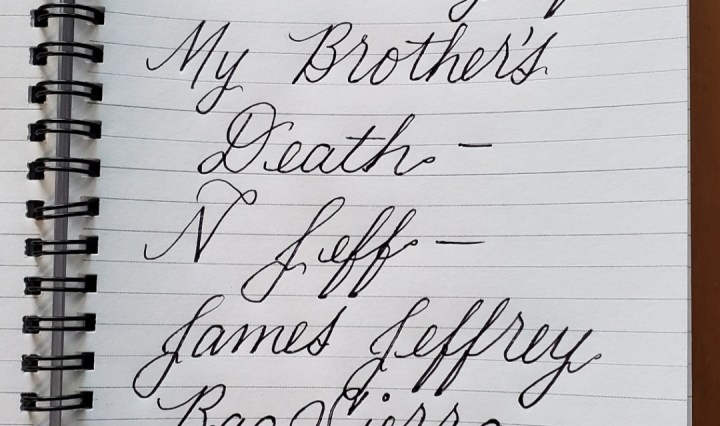 My Brother's
Death —
N Jeff —
James Jeffrey